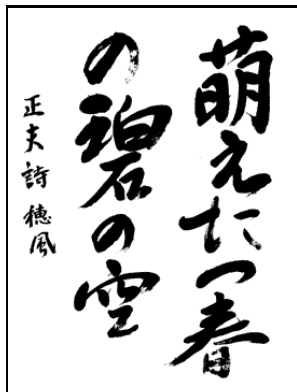 萌えたつ春
の碧の空
正夫詩 穂風